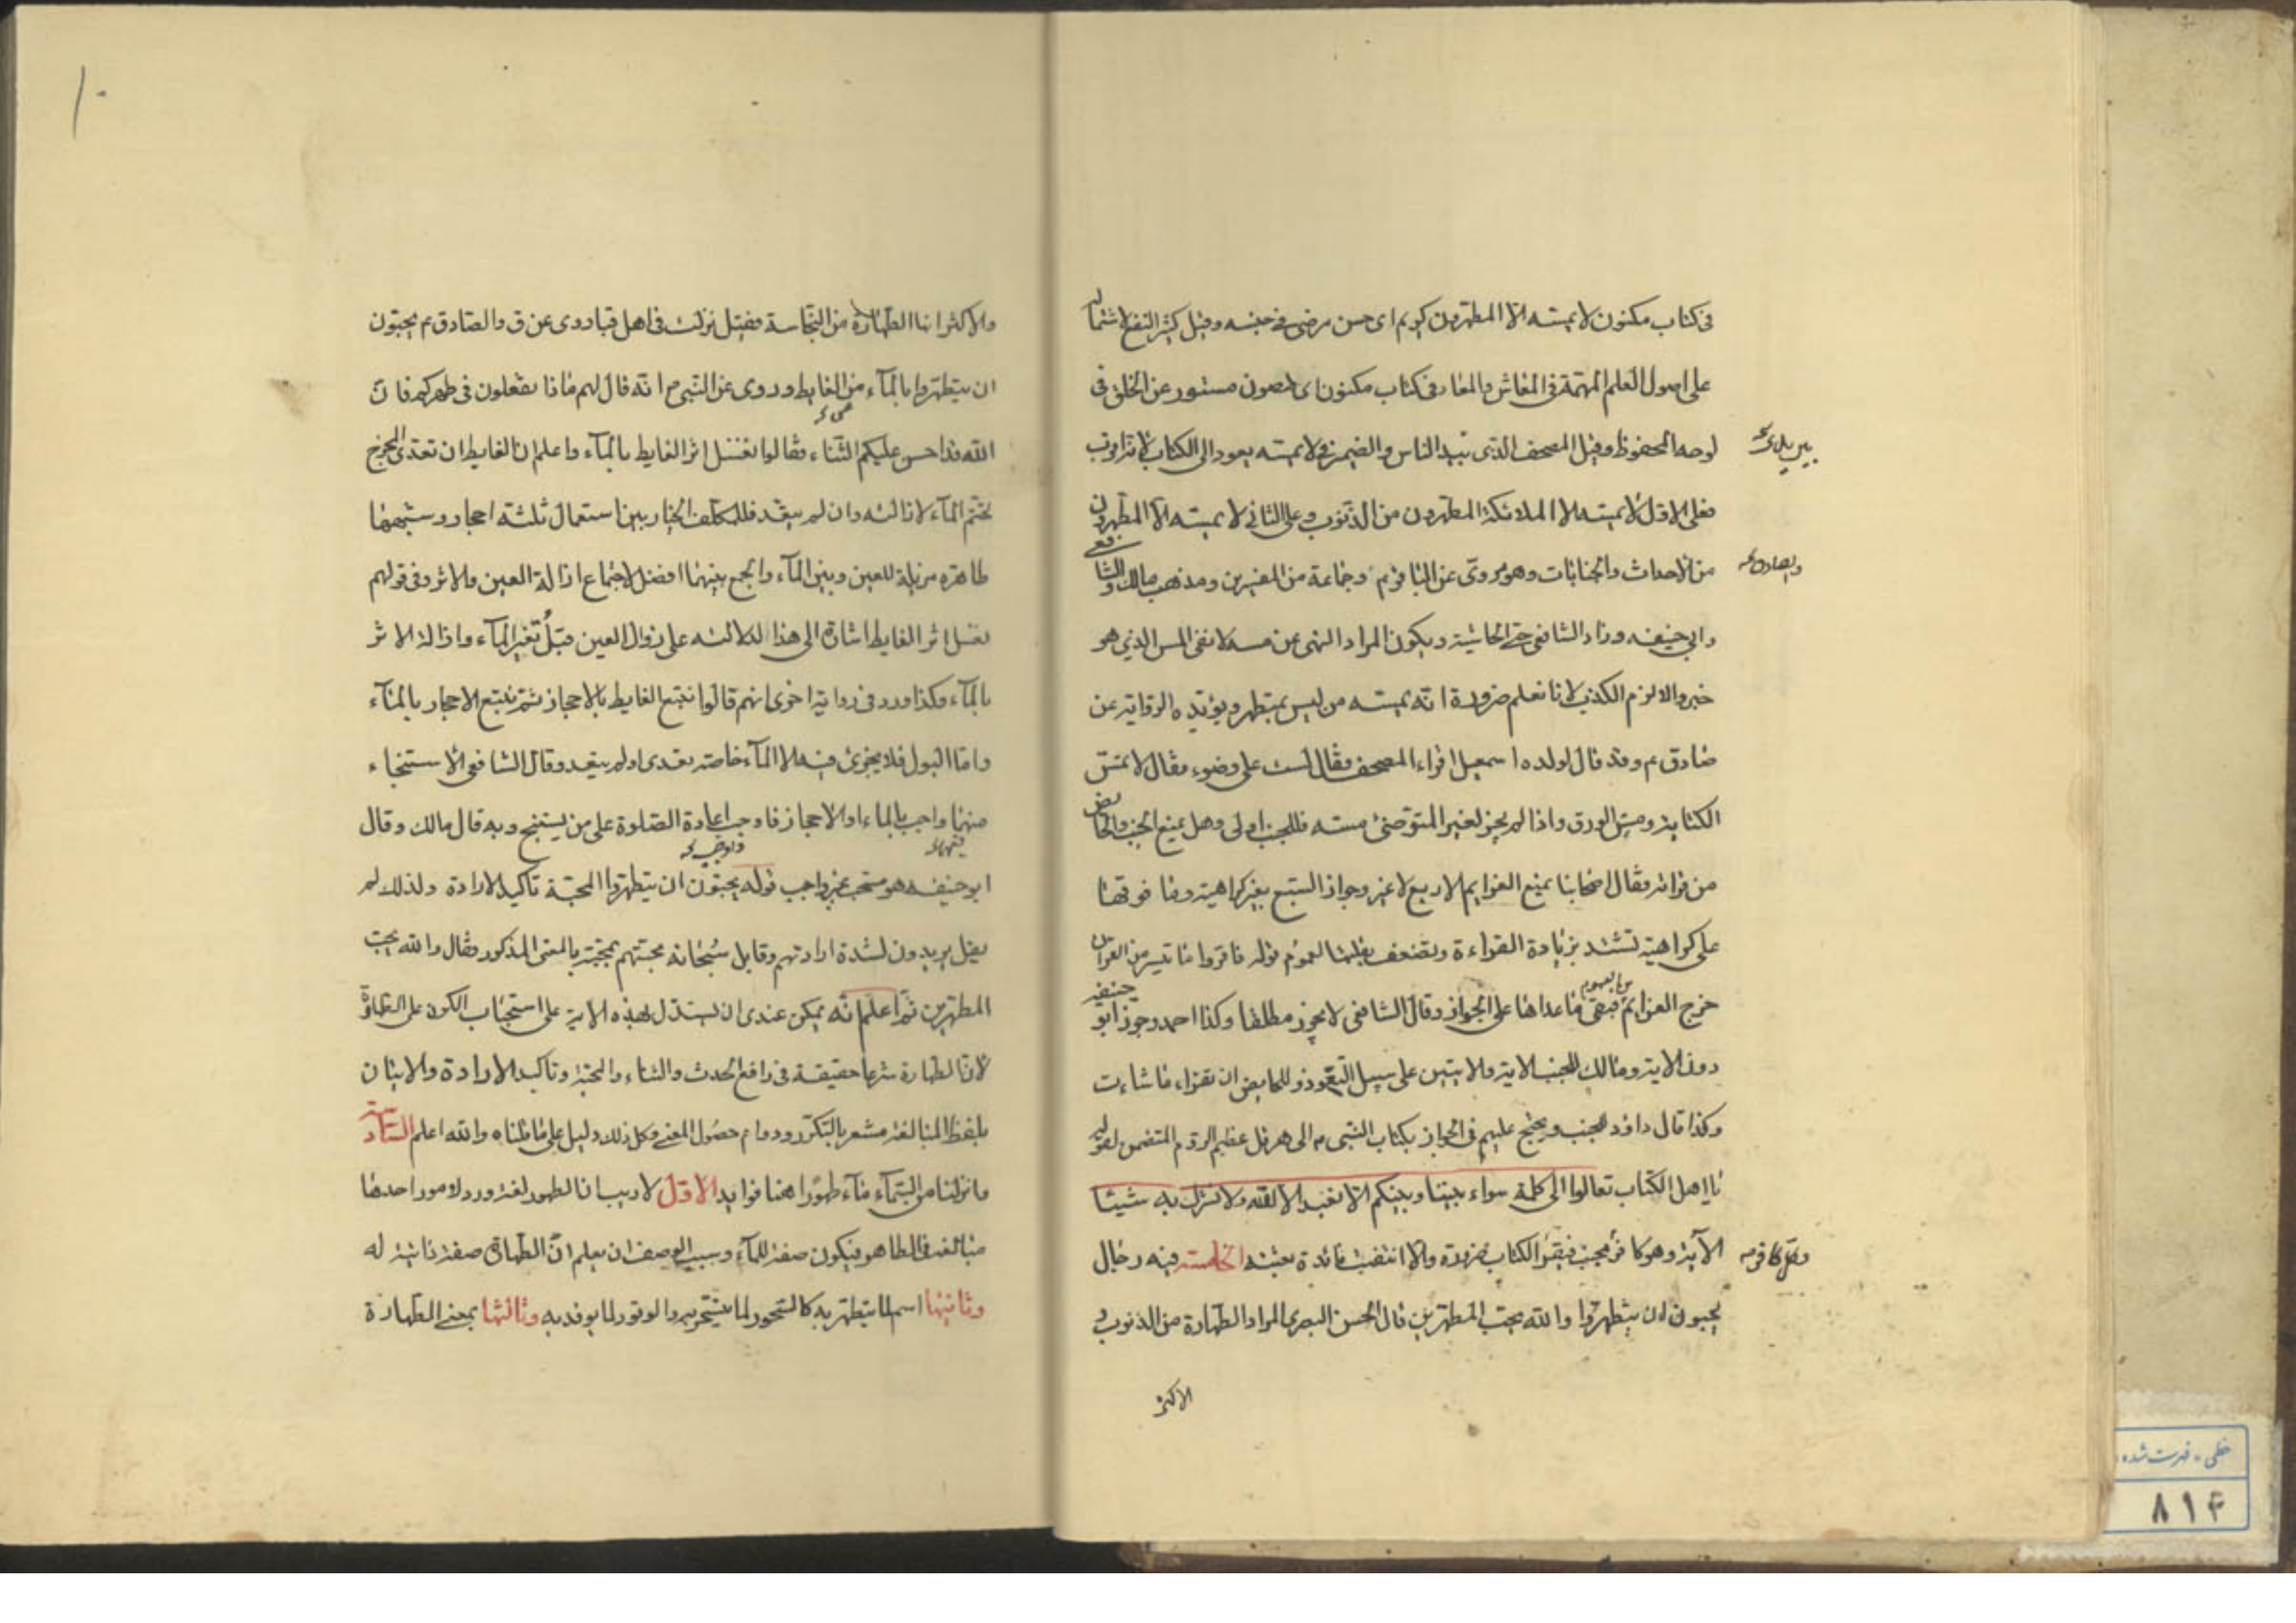 فى كتاب مكنون لا يمسه الا المطهرون كريم اى حسن مرضى فى جنسه وقيل كثير النفع لاشتماله
على اصول العلم المهمة فى المعاش والمعاد فى كتاب مكنون اى مصون مستور عن الخلق فى
لوحه المحفوظ وقيل المصحف الذى بيد الناس والضمير فى لا يمسه يعود الى الكتاب لانه اقرب
فعلى الاول لا يمسه الا الملائكة المطهرون من الذنوب وعلى الثانى لا يمسه الا المطهرون
من الاحداث والجنابات وهو مروى عن الباقر م وجماعة من المفسرين ومذهب مالك والشافعى
والصادق
وابى حنيفه وزاد الشافعى حتى الحاشية ويكون المراد النهى عن مسه لا نفى المس الذى هو
خبر والا لزم الكذب لانا نعلم ضرورة انه يمسه من ليس بمتطهر ويؤيده الرواية عن
صادق م وقد قال لولده اسمعيل اقراء المصحف فقال لست على وضوء فقال لا تمس
الكتابة ومس الورق واذا لم يجز لغير المتوضئ مسه فللجنب اولى وهل يمنع الجنب والحائض
من قرائته فقال اصحابنا يمنع العزايم الاربع لا غير وجواز السبع بغير كراهية وما فوقها
على كراهية تشتد بزيادة القراءة وتضعف بقلتها لعموم قوله فاقروا ما تيسر من القران
خرج العزائم فبقى ما عداها على الجواز وقال الشافعى لا يجوز مطلقا وكذا احمد وجوز ابو حنيفة
دون الاية ومالك للجنب الاية والايتين على سبيل التعوذ وللحايض ان تقراء ما شاءت
وكذا قال داود للجنب ويحتج عليهم فى الجواز بكتاب النبى م الى هرقل عظيم الروم المتضمن لقوله
يا اهل الكتاب تعالوا الى كلمة سواء بيننا وبينكم الا نعبد الا الله ولا نشرك به شيئا
الآية وهو كافر مجنب فيقرأ الكتاب ضرورة والا انتفت فائدة بعثته الخامسة فيه رجال
يحبون ان يتطهروا والله يحب المطهرين قال الحسن البصرى المراد الطهارة من الذنوب و
الاكثر
١٠
والاكثر انها الطهارة من النجاسة فقيل نزلت فى اهل قبا روى عن ق والصادق م يحبون
ان يتطهروا بالمآء من الغايط وروى عن النبى م انه قال لهم ماذا تفعلون فى طهركم فان
الله قد احسن عليكم الثناء فقالوا نغسل اثر الغايط بالمآء واعلم ان الغايط ان تعدى المخرج
تحتم المآء لازالته وان لم يتعد فللمكلف الخيار بين استعمال ثلثة احجار وشبهها
طاهرة مزيلة للعين وبين المآء والجمع بينهما افضل لاجتماع ازالة العين والاثر وفى قولهم
نغسل اثر الغايط اشارة الى هذا لدلالته على زوال العين قبل بغير المآء وازالة الاثر
بالمآء وكذا ورد فى رواية اخرى انهم قالوا نتبع الغايط بالاحجار ثم نتبع الاحجار بالمآء
واما البول فلا يجزى فيه الا المآء خاصة تعدى او لم يتعد وقال الشافعى الاستنجاء
منهما واجب بالماء او الاحجار فاوجب اعادة الصلوة على من يستنج وبه قال مالك وقال
ابو حنيفه هو مستحب غير واجب قوله يحبون ان يتطهروا المحبة تاكيد الارادة ولذلك لم
يقل يريدون لشدة ارادتهم وقابل سبحانه محبتهم بمحبته بالمعنى المذكور فقال والله يحب
المطهرين ثم اعلم انه يمكن عندى ان يستدل بهذه الاية على استحباب الكون على الطهارة
لان الطهارة شرعا حقيقة فى رافع الحدث والثناء والمحبة وتاكيد الارادة والاتيان
بلفظ المبالغة مشعر بالتكرر ودوام حصول المعنى وكل ذلك دليل على ما قلناه والله اعلم السادسة
وانزلنا من السمآء مآء طهورا هنا فوايد الاول لا ريب ان الطهور لغة ورد لامور احدها
مبالغة فى الطاهر فيكون صفة للمآء وسبب الوصف ان يعلم ان الطهارة صفة ذاتية له
وثانيها اسم لما يتطهر به كالسحور لما يتسحر به والوقود لما يوقد به وثالثها بمعنى الطهارة
خطى - فهرست شده
٨١۴